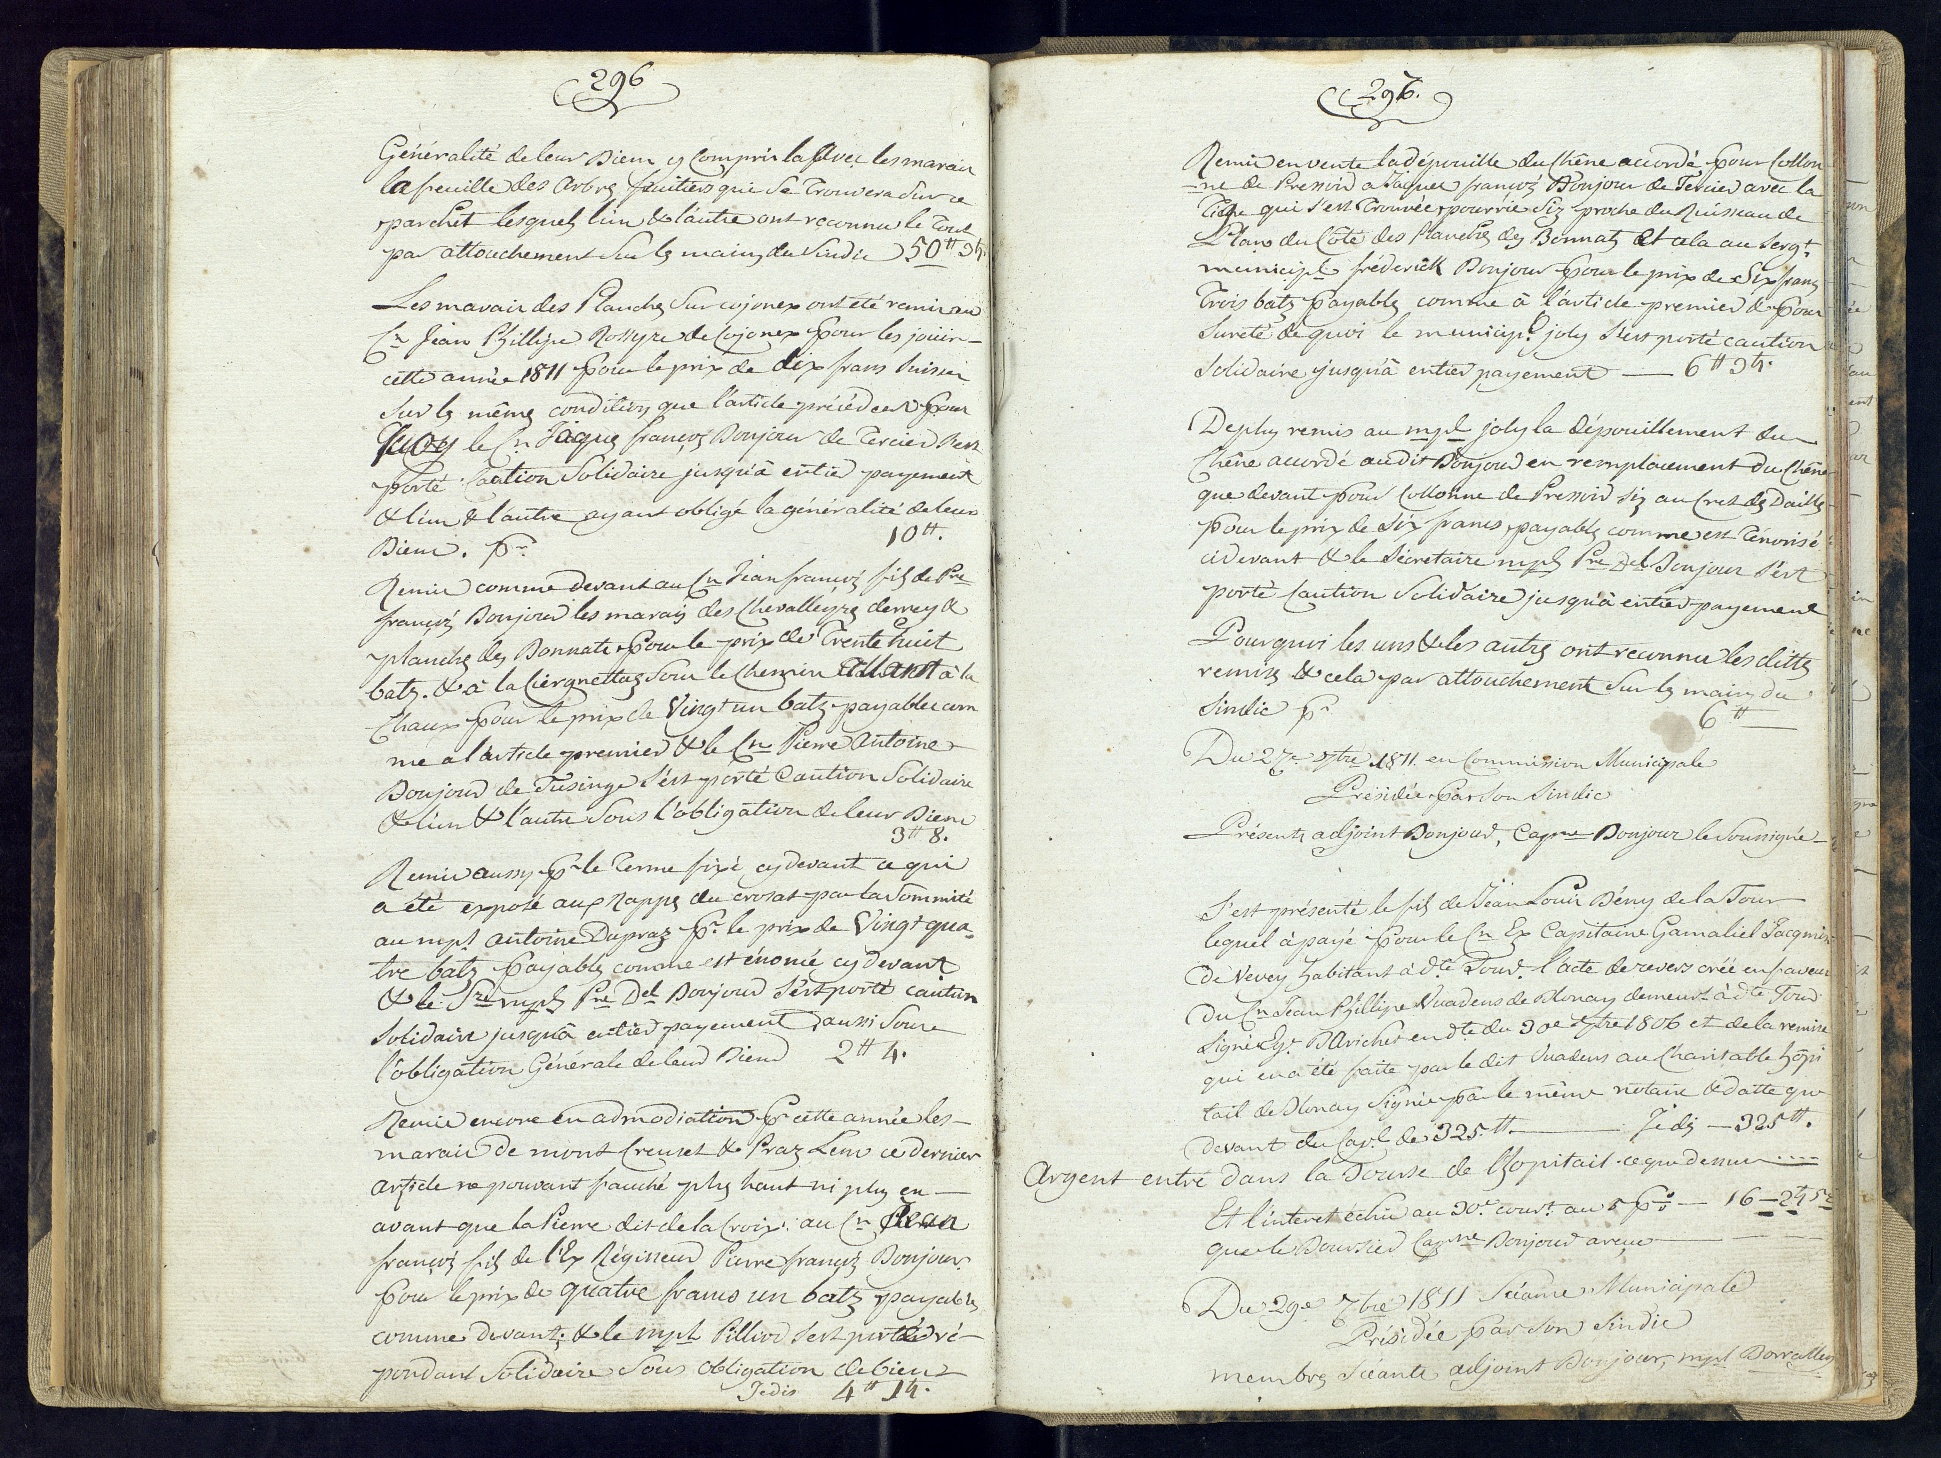 296
Généralité de leur Biens y Compris la avec les marais
la feuille des Arbres fruitiers qui Se Trouvera Sur ce
parchet lesquels l'un & l'autre ont reconnu le Tout
par attouchement Sur les mains du Sindic 50 tt 3 h.
Les marais des Planches Sur cojonex ont été remis au
Cn Jean Phillipe Rossyre de Cojonex pour les jouir
cette année 1811 pour le prix de dix francs Suisses
Sur les mêmes conditions que l'article précédent pour
quoy le Cn Jaques françois Bonjour de Tercier s'est
porté Caution Solidaire jusqu'à entier payement
& l'un & l'autre ayant obligé la généralité de leurs
Biens. pr. 10 tt.
Remis comme devant au Cn Jean françois fils de Pre
françois Bonjour les marais des Chevalleyres derrey &
planches des Bonnats pour le prix de Trente huit
batz. & à la Ciergnettaz Sous le Chemin allant à la
Chaux pour le prix de Vingt un batz payables com
me a l'article premier & le Cn Pierre Antoine
Bonjour de Tusinge s'est porté Caution Solidaire
& l'un & l'autre Sous l'obligation de leurs Biens
3 tt 8.
Remis aussy pr le Terme fixé cydevant ce qui
a été exposé aux Rappes du crosat par la Sommité
au mpl Antoine Dupraz pr. le prix de Vingt qua-
tre batz payables comme est énoncé cydevant
& le Sre mpl Pre Del Bonjour s'est porté caution
Solidaire jusqu'à entier payement aussi Sous
l'obligation Générale de leur Biens 2 tt 4.
Remis encore en admodiation pr cette année les
marais de mont Creuset & Praz Lem ce dernier
Article ne pouvant fauché plus haut ni plus en
avant que la Pierre dit de la Croix. au Cn Jean
françois fils de l'Ex Régisseur Pierre françois Bonjour
pour le prix de quatre francs un batz payables
comme devant, & le mpl Pilliod s'est porté ré-
pondant Solidaire Sous obligation de biens
Jedis 4 tt 1 h.
297.
Remis en vente la dépouille du Chêne accordé pour Collon
-ne de Pressoir a Jaques françois Bonjour de Tercier avec la
Tige qui s'est Trouvée pourrie Siz proche du Ruisseau de
Plans du Côté des Planches des Bonnats Et cela au Sergt
municipl fréderick Bonjour pour le prix de Six francs
Trois batz payables comme à l'article premier & pour
Sureté de quoi le municipl joly s'est porté caution
Solidaire jusqu'à entier payement — 6 tt 3 h.
De plus remis au mpl joly la dépouillement du
Chêne accordé audit Bonjour en remplacement du Chêne
que devant pour Collonne de Pressoir siz au Cret des Dailles
pour le prix de Six francs payables comme est Ténorisé
cidevant & le Sécretaire mpl Pre Del Bonjour s'est
porté Caution Solidaire jusqu'à entier payement
Pourquoi les uns & les autres ont reconnu les dittes
remises & cela par attouchement Sur les mains du
Sindic pr 6 tt —
Du 27e 7bre 1811. en Commission Municipale
Présidée par Son Sindic
Présents adjoint Bonjour, Capne Bonjour le Soussigné
S'est présenté le fils de Jean Louis Dény de la Tour
lequel à payé pour le Cn Ex Capitaine Gamaliel Jacquin
de Vevey habitant à dte Tour. l'acte de revers créé en faveur
du Cn Jean Phillipe Vuadens de Blonay demeurt à dte Tour
Signé Davichet en dte du 30e 7bre 1806 et de la remise
qui en a été faite par le dit Vuadens au Charitable hôpi
tail de Blonay Signée par le même notaire & datte que
devant du Capl de 325 tt. — Jedis — 325 tt.
Argent entré dans la Bourse de l'hopitail. ce que dessus ....
Et l'interet échu au 30e court. au 5 p% — 16 — 2 h 5 r
que le Boursier Capne Bonjour a reçu — — —
Du 29e 7bre 1811 Séance Municipale
Présidée par Son Sindic
membres Séants adjoint Bonjour, mpl